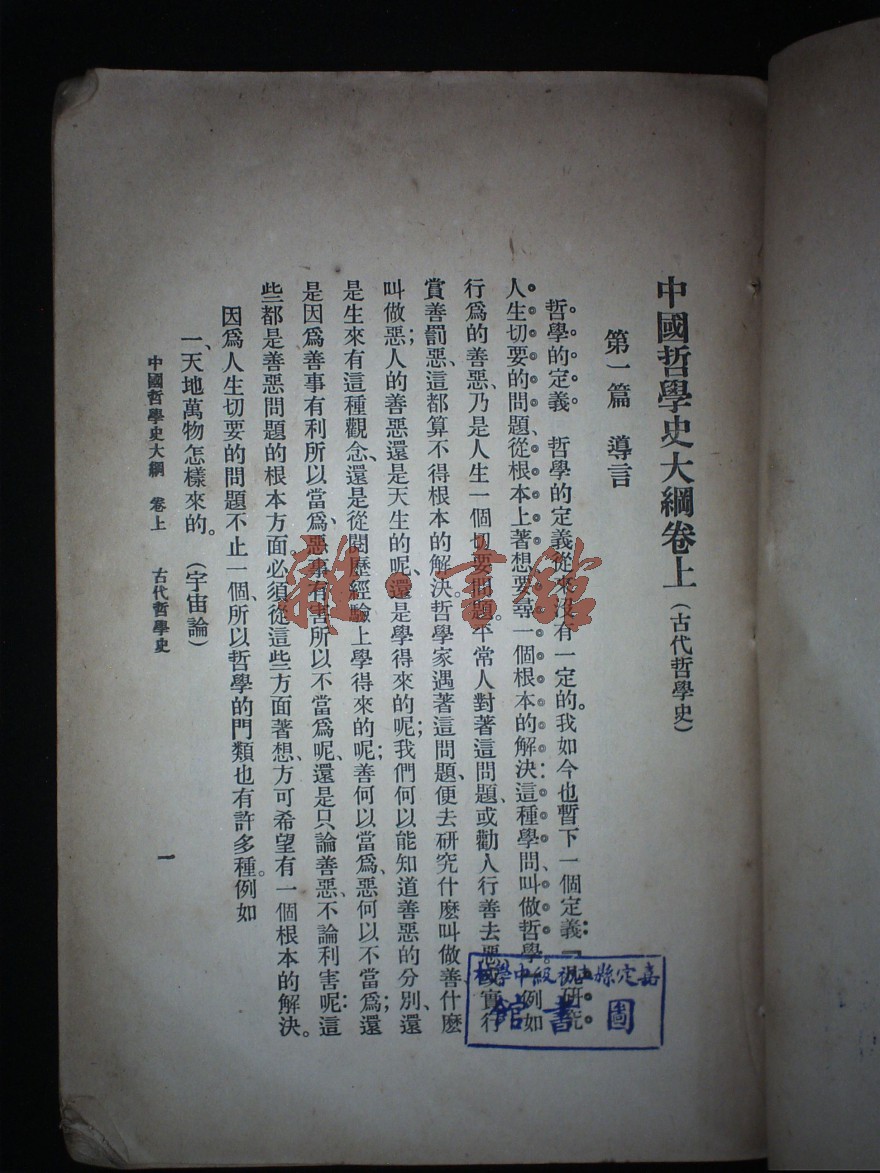 中國哲學史大綱卷上（古代哲學史）
第一篇　導言
哲學的定義　哲學的定義從來沒有一定的。我如今也暫下一個定義：「凡研究
人生切要的問題、從根本上著想、要尋一個根本的解決：這種學問、叫做哲學。」例如
行爲的善惡、乃是人生一個切要問題。平常人對著這問題、或勸人行善去惡、或實行
賞善罰惡、這都算不得根本的解決。哲學家遇著這問題、便去研究什麼叫做善、什麼
叫做惡；人的善惡還是天生的呢、還是學得來的呢；我們何以能知道善惡的分別、還
是生來有這種觀念、還是從閱歷經驗上學得來的呢；善何以當爲、惡何以不當爲；還
是因爲善事有利所以當爲、惡事有害所以不當爲呢、還是只論善惡、不論利害呢：這
些都是善惡問題的根本方面。必須從這些方面著想、方可希望有一個根本的解決。
因爲人生切要的問題不止一個、所以哲學的門類也有許多種。例如
一、天地萬物怎樣來的。（宇宙論）
中國哲學史大綱　卷上　古代哲學史
一
嘉定縣立初級中學校
圖書館
雜·書館